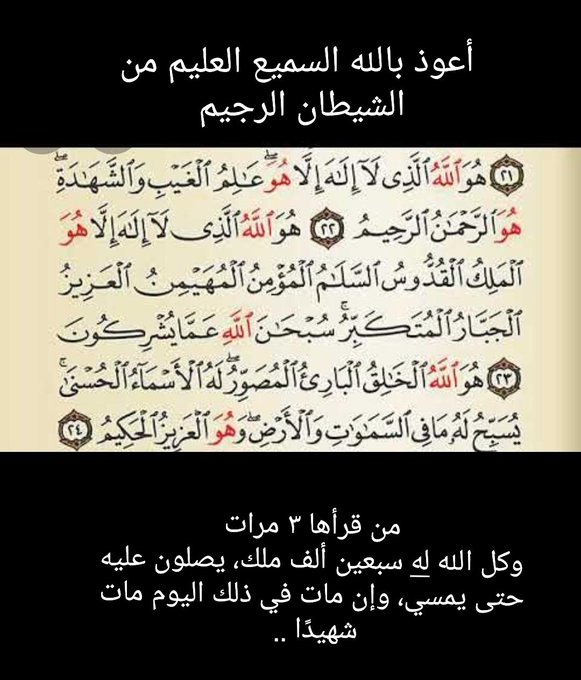 أعوذ بالله السميع العليم من
الشيطان الرجيم
٢١ هُوَ ٱللَّهُ ٱلَّذِى لَآ إِلَـٰهَ إِلَّا هُوَۖ عَـٰلِمُ ٱلْغَيْبِ وَٱلشَّهَـٰدَةِۖ
هُوَ ٱلرَّحْمَـٰنُ ٱلرَّحِيمُ ٢٢ هُوَ ٱللَّهُ ٱلَّذِى لَآ إِلَـٰهَ إِلَّا هُوَ
ٱلْمَلِكُ ٱلْقُدُّوسُ ٱلسَّلَـٰمُ ٱلْمُؤْمِنُ ٱلْمُهَيْمِنُ ٱلْعَزِيزُ
ٱلْجَبَّارُ ٱلْمُتَكَبِّرُۚ سُبْحَـٰنَ ٱللَّهِ عَمَّا يُشْرِكُونَ
٢٣ هُوَ ٱللَّهُ ٱلْخَـٰلِقُ ٱلْبَارِئُ ٱلْمُصَوِّرُۖ لَهُ ٱلْأَسْمَآءُ ٱلْحُسْنَىٰۚ
يُسَبِّحُ لَهُۥ مَا فِى ٱلسَّمَـٰوَٰتِ وَٱلْأَرْضِۖ وَهُوَ ٱلْعَزِيزُ ٱلْحَكِيمُ ٢٤
من قرأها ٣ مرات
وكل الله له سبعين ألف ملك، يصلون عليه
حتى يمسي، وإن مات في ذلك اليوم مات
شهيدًا ..